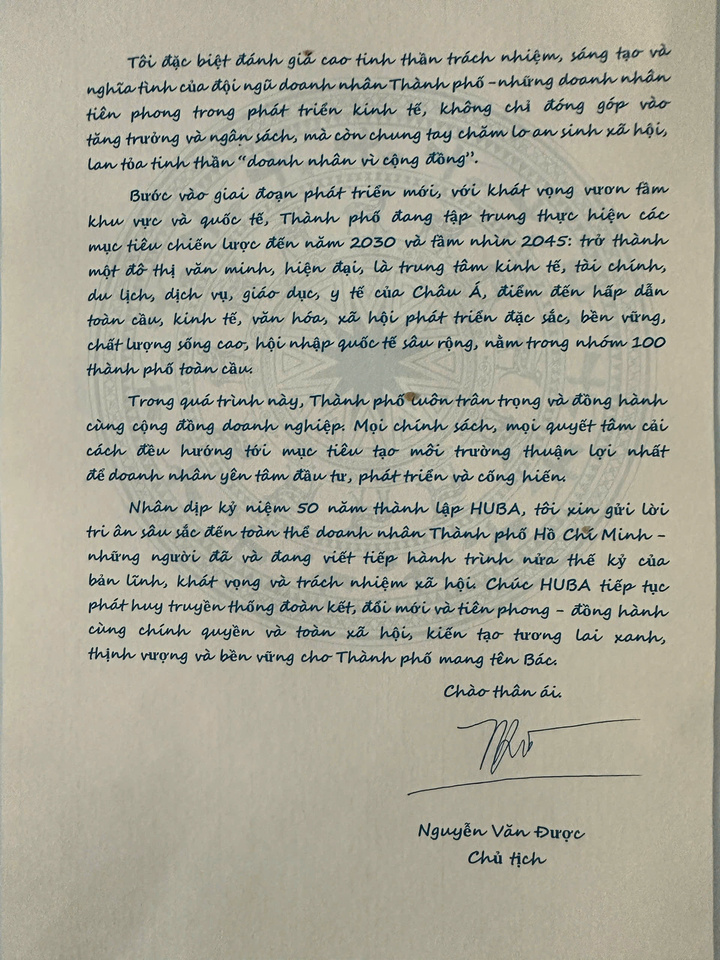 Tôi đặc biệt đánh giá cao tinh thần trách nhiệm, sáng tạo và
nghĩa tình của đội ngũ doanh nhân Thành phố -những doanh nhân
tiên phong trong phát triển kinh tế, không chỉ đóng góp vào
tăng trưởng và ngân sách, mà còn chung tay chăm lo an sinh xã hội,
lan tỏa tinh thần “doanh nhân vì cộng đồng”.
Bước vào giai đoạn phát triển mới, với khát vọng vươn tầm
khu vực và quốc tế, Thành phố đang tập trung thực hiện các
mục tiêu chiến lược đến năm 2030 và tầm nhìn 2045: trở thành
một đô thị văn minh, hiện đại, là trung tâm kinh tế, tài chính,
du lịch, dịch vụ, giáo dục, y tế của Châu Á, điểm đến hấp dẫn
toàn cầu, kinh tế, văn hóa, xã hội phát triển đặc sắc, bền vững,
chất lượng sống cao, hội nhập quốc tế sâu rộng, nằm trong nhóm 100
thành phố toàn cầu.
Trong quá trình này, Thành phố luôn trân trọng và đồng hành
cùng cộng đồng doanh nghiệp. Mọi chính sách, mọi quyết tâm cải
cách đều hướng tới mục tiêu tạo môi trường thuận lợi nhất
để doanh nhân yên tâm đầu tư, phát triển và cống hiến.
Nhân dịp kỷ niệm 50 năm thành lập HUBA, tôi xin gửi lời
tri ân sâu sắc đến toàn thể doanh nhân Thành phố Hồ Chí Minh -
những người đã và đang viết tiếp hành trình nửa thế kỷ của
bản lĩnh, khát vọng và trách nhiệm xã hội. Chúc HUBA tiếp tục
phát huy truyền thống đoàn kết, đổi mới và tiên phong - đồng hành
cùng chính quyền và toàn xã hội, kiến tạo tương lai xanh,
thịnh vượng và bền vững cho Thành phố mang tên Bác.
Chào thân ái.
Nguyễn Văn Được
Chủ tịch